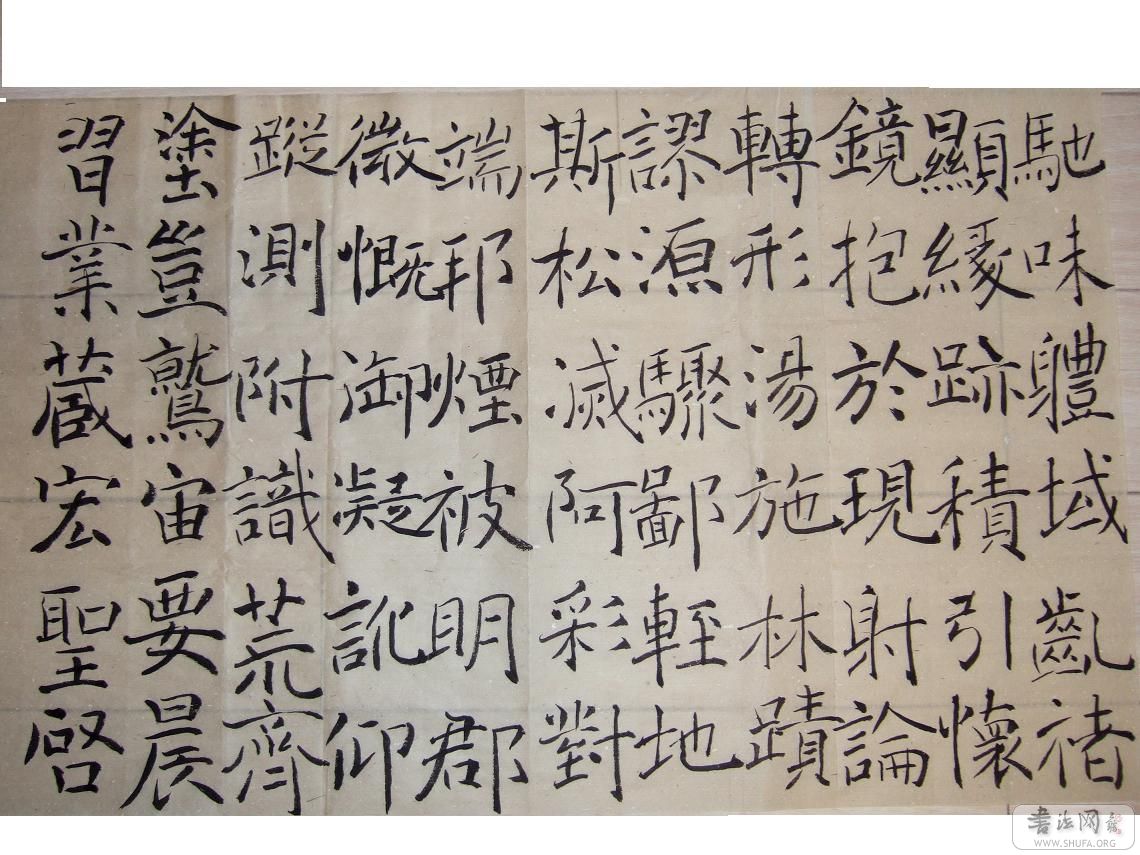 馳味軆域齒褚
顯緣跡積引懷
鏡抱於現射論
轉形湯施林蹟
謬源驟鄙輕地
斯松滅阿彩對
端邦煙被明郡
微慨御凝訛仰
蹤測附識荒齊
塗豈鷲宙要晨
習業蔵宏聖啓
书法网
WWW.SHUFA.ORG